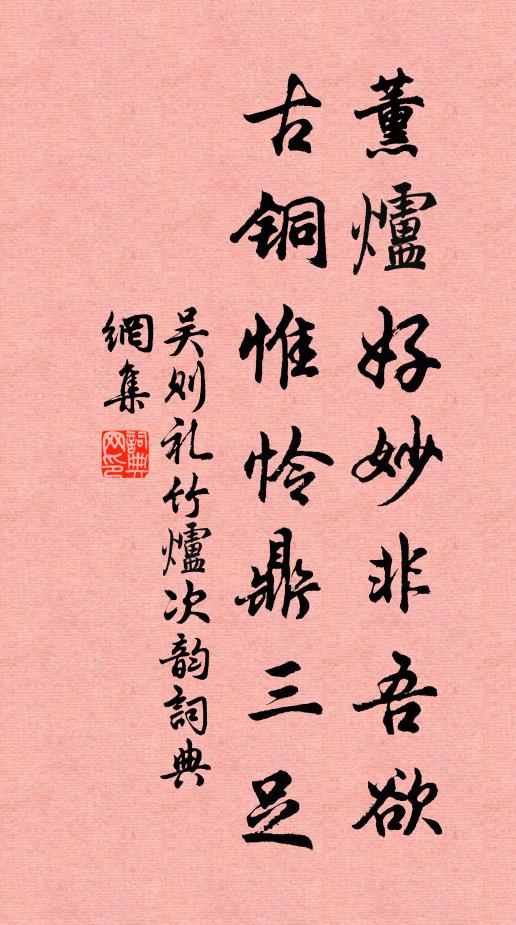 薰爐好妙非吾欲
古铜惟怜鼎三足
吴则礼竹爐次韵詞典
網集
詞典
网印